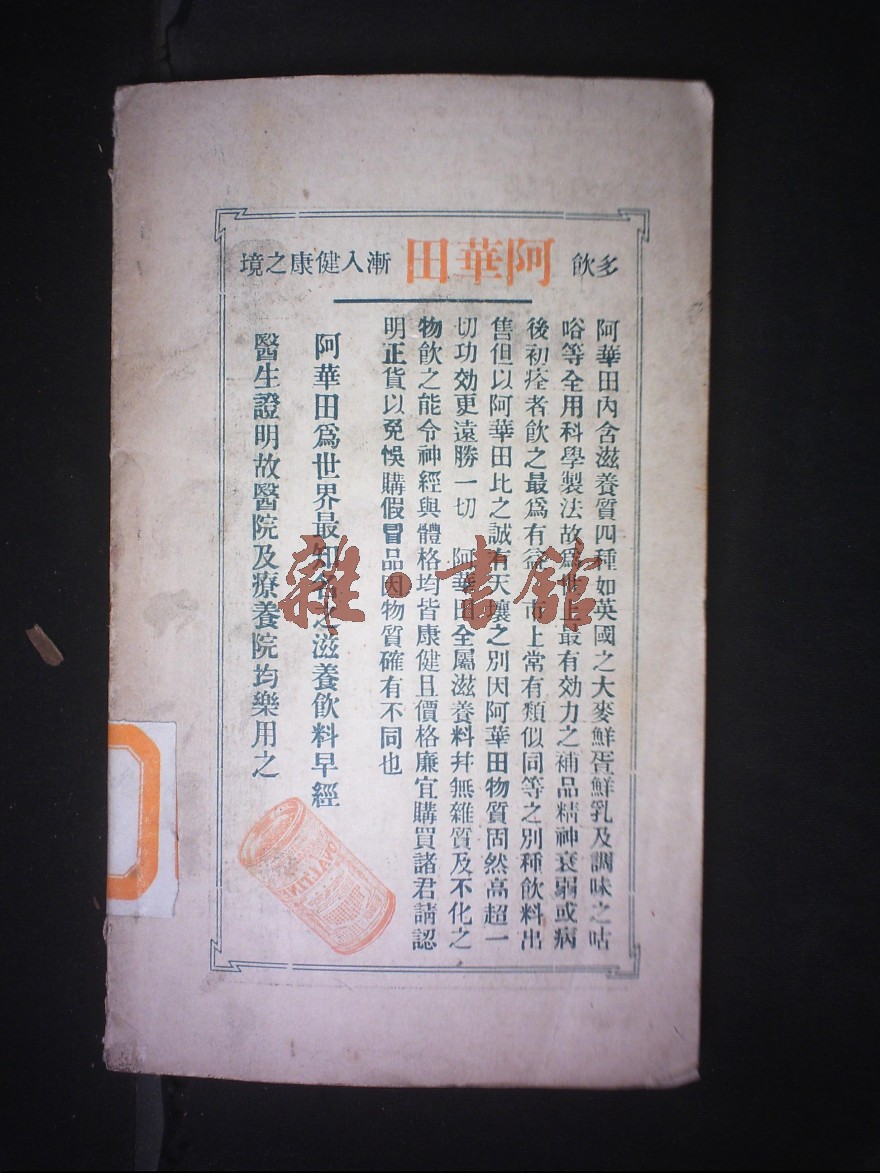 多飲 阿華田 漸入健康之境
阿華田內含滋養質四種如英國之大麥鮮蛋鮮乳及調味之咕
咯等全用科學製法故爲世上最有効力之補品精神衰弱或病
後初痊者飲之最爲有益 市上常有類似同等之別種飲料出
售但以阿華田比之誠有天壤之別因阿華田物質固然高超一
切功効更遠勝一切 阿華田全屬滋養料幷無雜質及不化之
物飲之能令神經與體格均皆康健且價格廉宜購買諸君請認
明正貨以免悞購假冒品因物質確有不同也
阿華田爲世界最知名之滋養飲料早經
醫生證明故醫院及療養院均樂用之
雜·書館